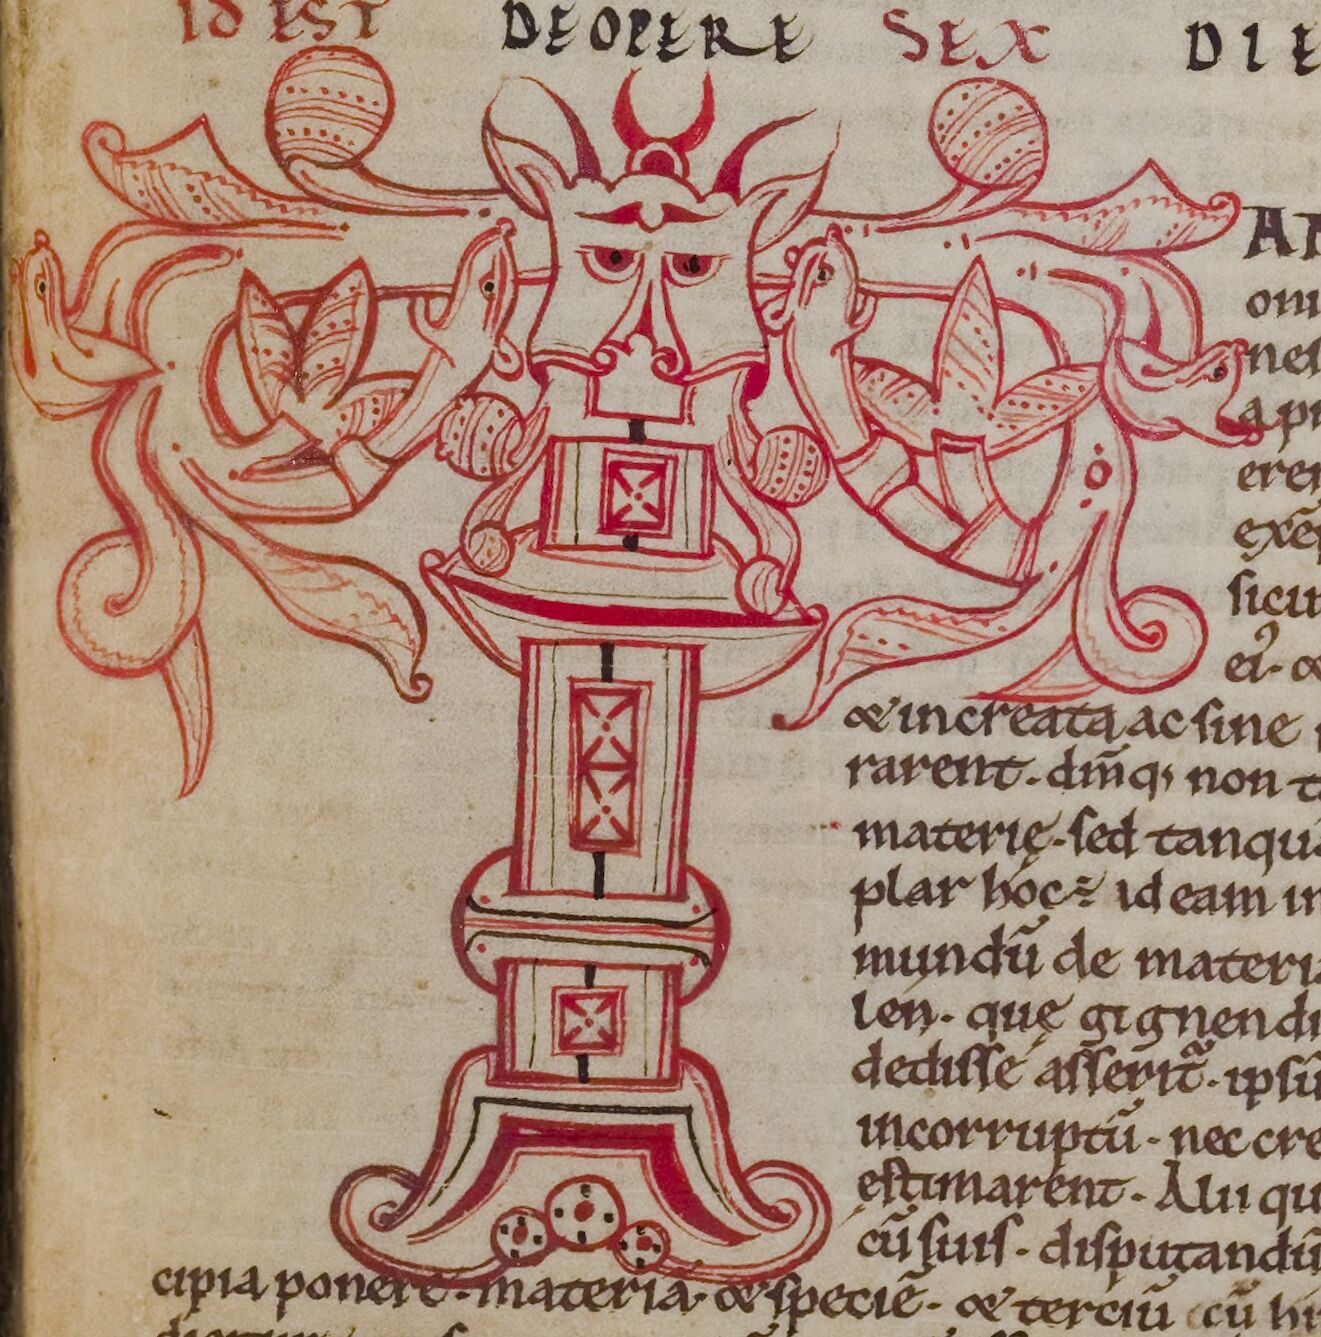 Id EST DE OPERE SEX DIE
oni
nel
a pr
erer
exē
sicut
ei· &
& increata ac sine
rarent· dm̄q; non t
materię· sed tanqua
plar hoc ÷ ideam in
mundū de materia
len· quę gignendi
dedisse asserit̃· ipsū
incorruptū· nec cre
estimarent· Alii qu
cū suis· disputandū
cipia ponere· materia· & speciē· & terciū cū hi